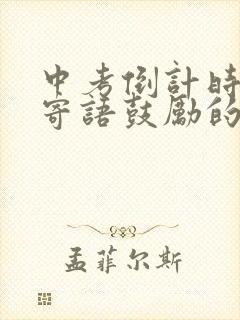 中考倒計時
寄語鼓勵的
孟菲尔斯